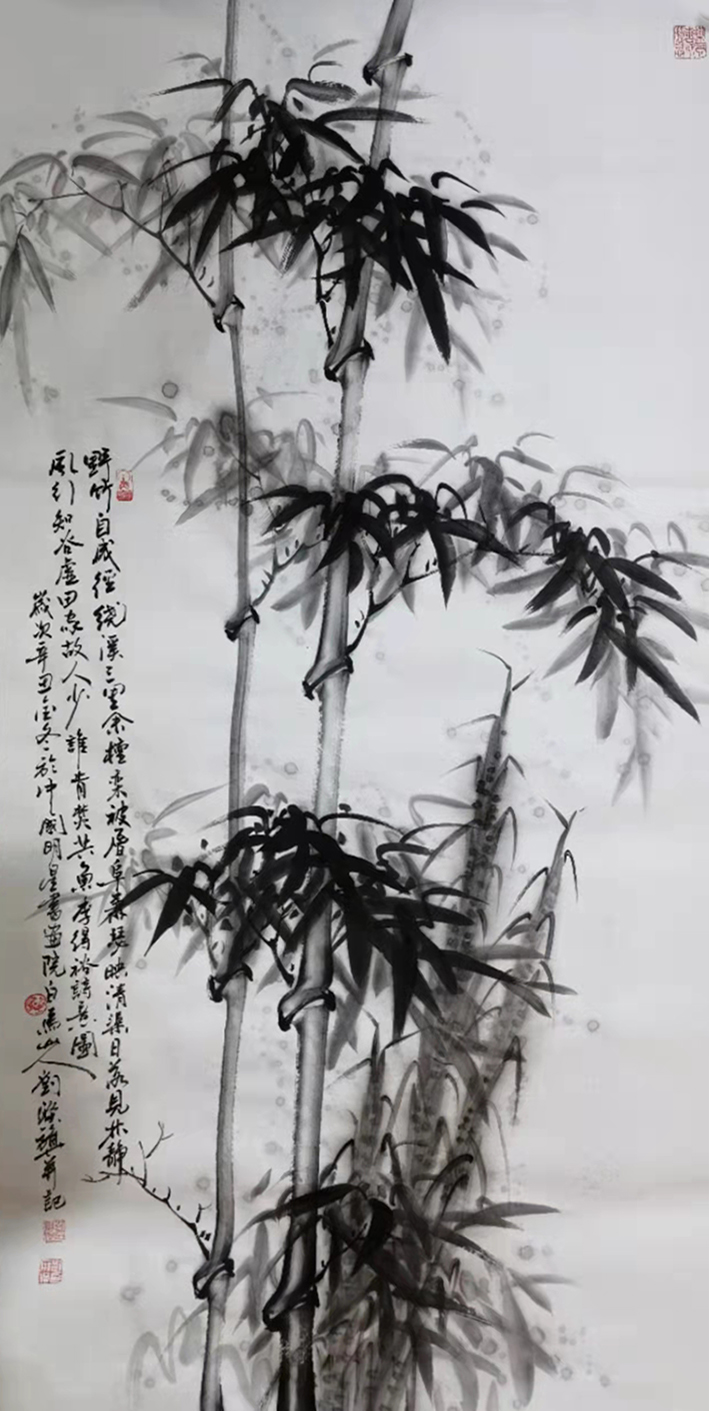 野竹自成徑绕溪三里余檀栾被層阜森瑟映清渠日落見林静
風行知谷虚田家故人少誰肯焚共魚李得裕詩意圖
歲次辛丑冬於中國明星書畫院白馬山人劉並記